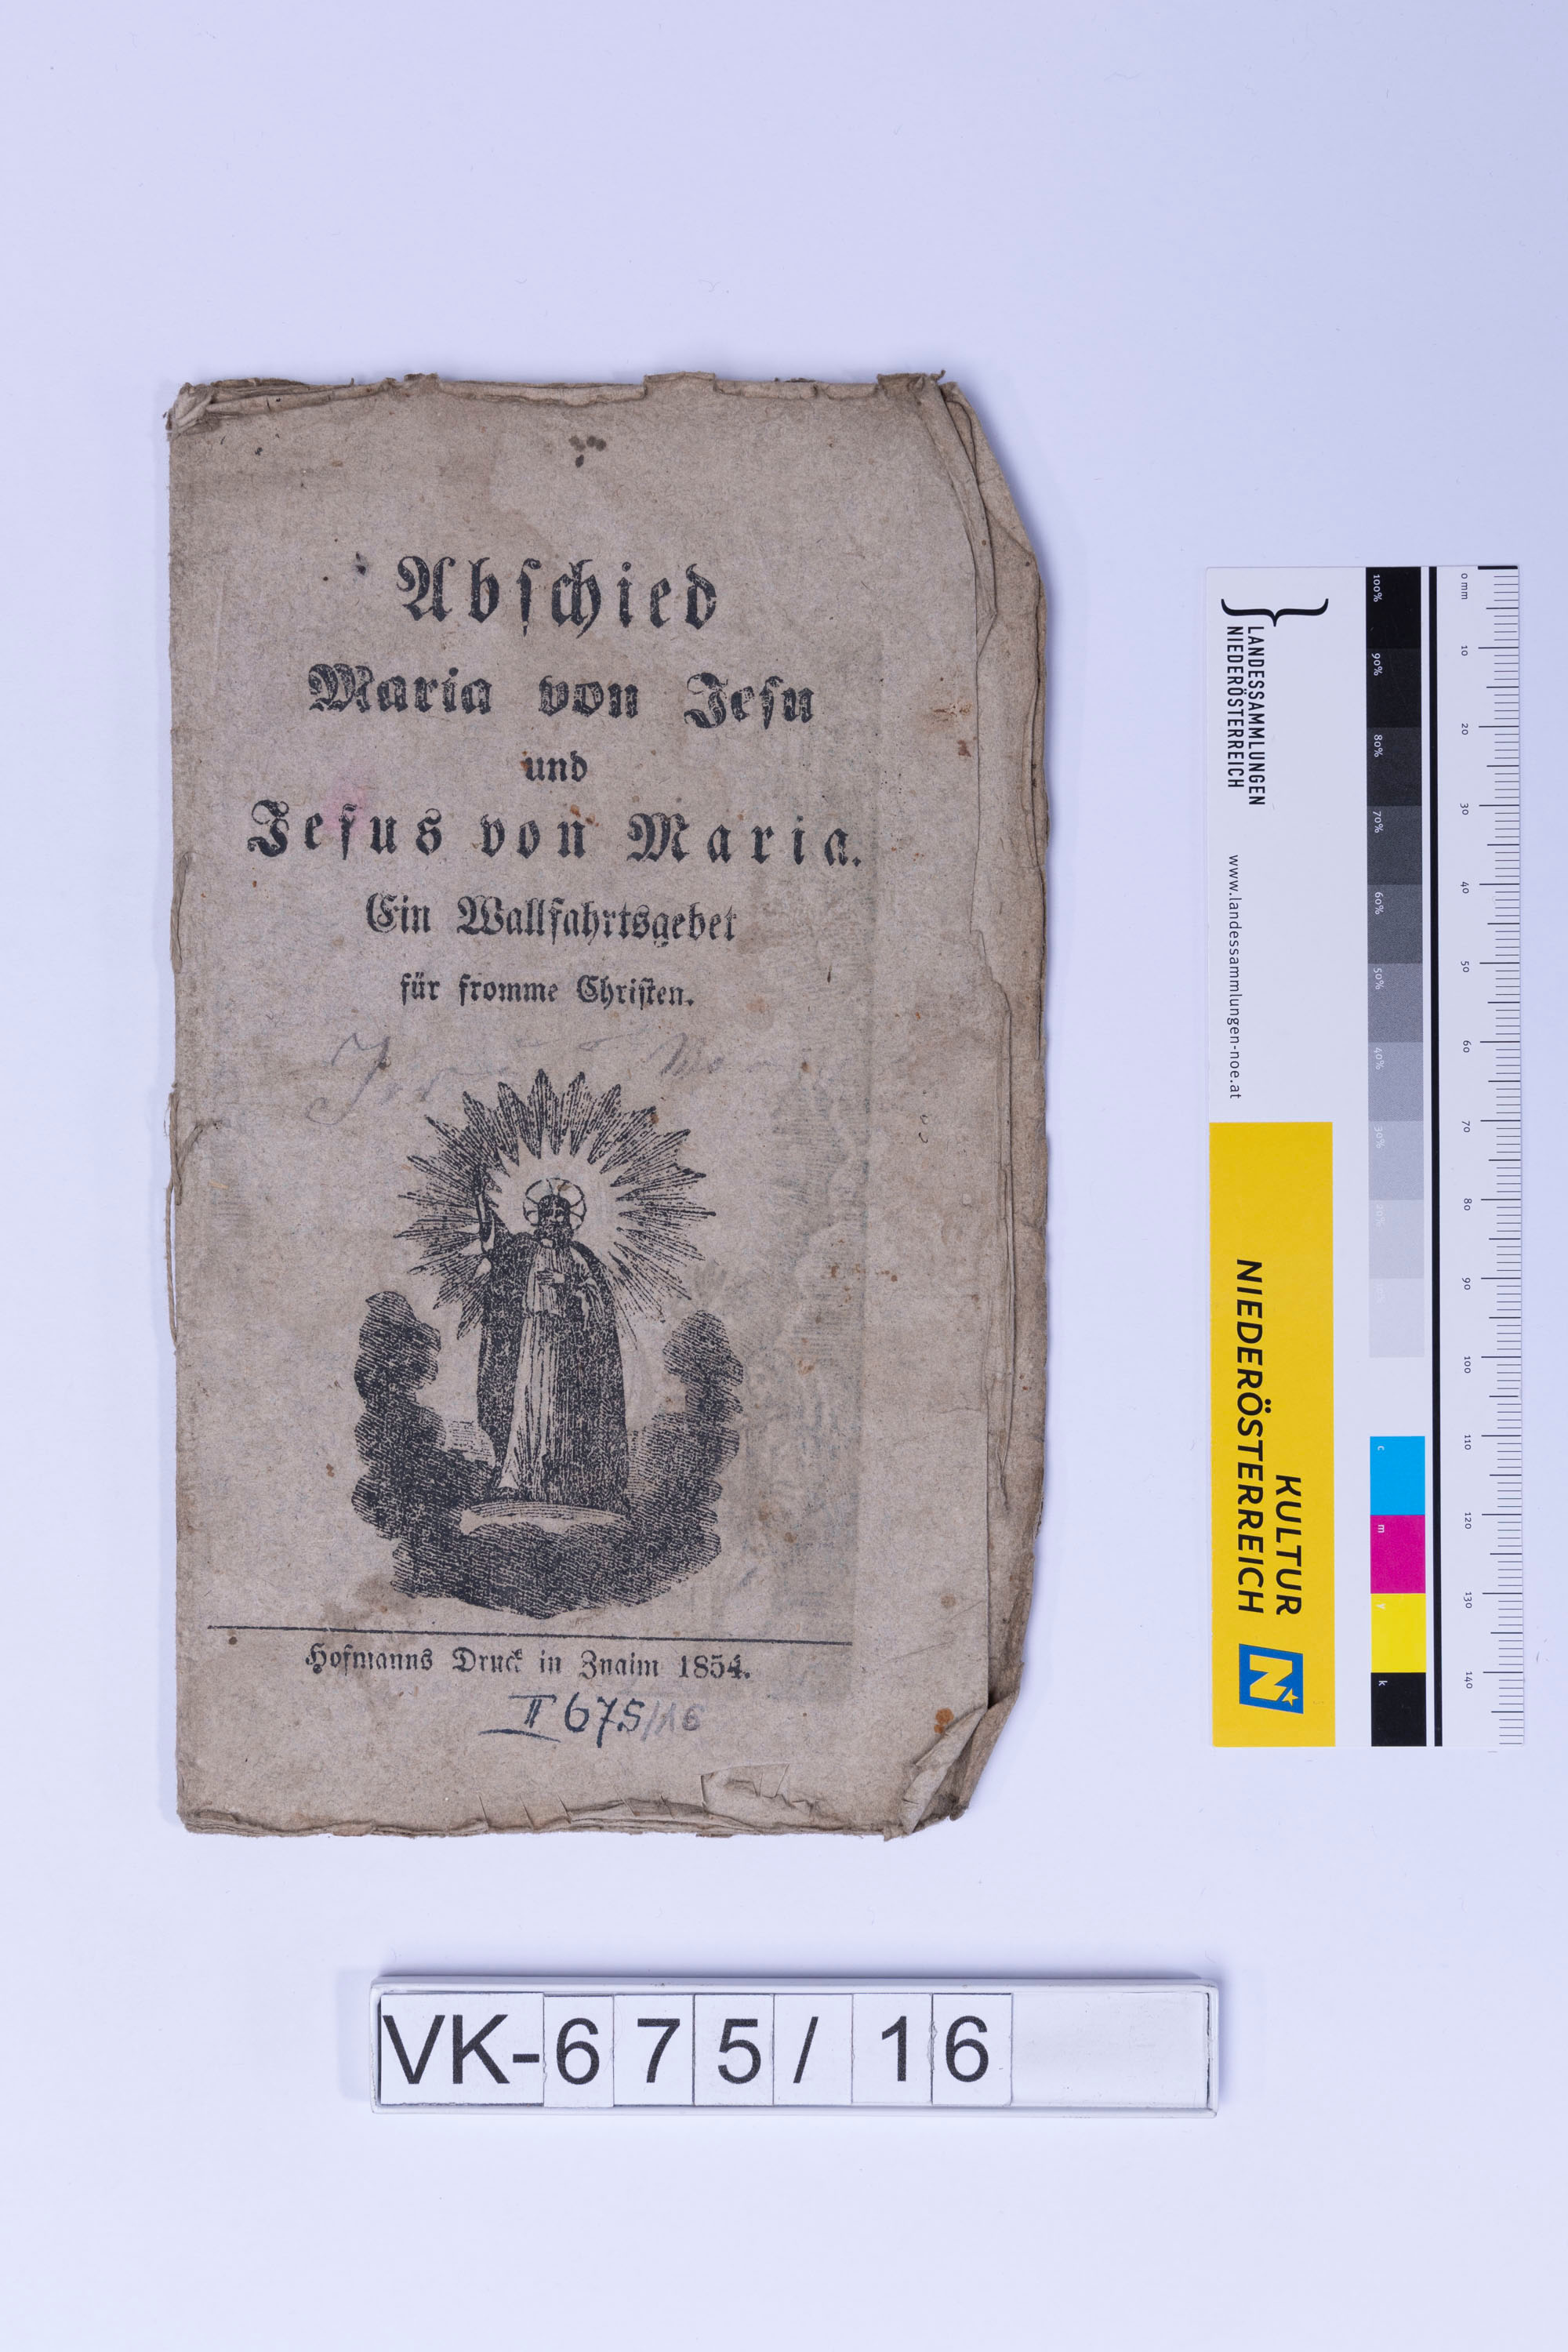 Abschied
Maria von Jesu
und
Jesus von Maria.
Ein Wallfahrtsgebet
für fromme Christen.
Hofmanns Druck in Znaim 1854.
II 675/16
VK-675/16
LANDESSAMMLUNGEN
NIEDERÖSTERREICH
www.landessammlungen-noe.at
KULTUR
NIEDERÖSTERREICH
N
100%
90%
80%
70%
60%
50%
40%
30%
20%
10%
c
m
y
k
0 mm
10
20
30
40
50
60
70
80
90
100
110
120
130
140